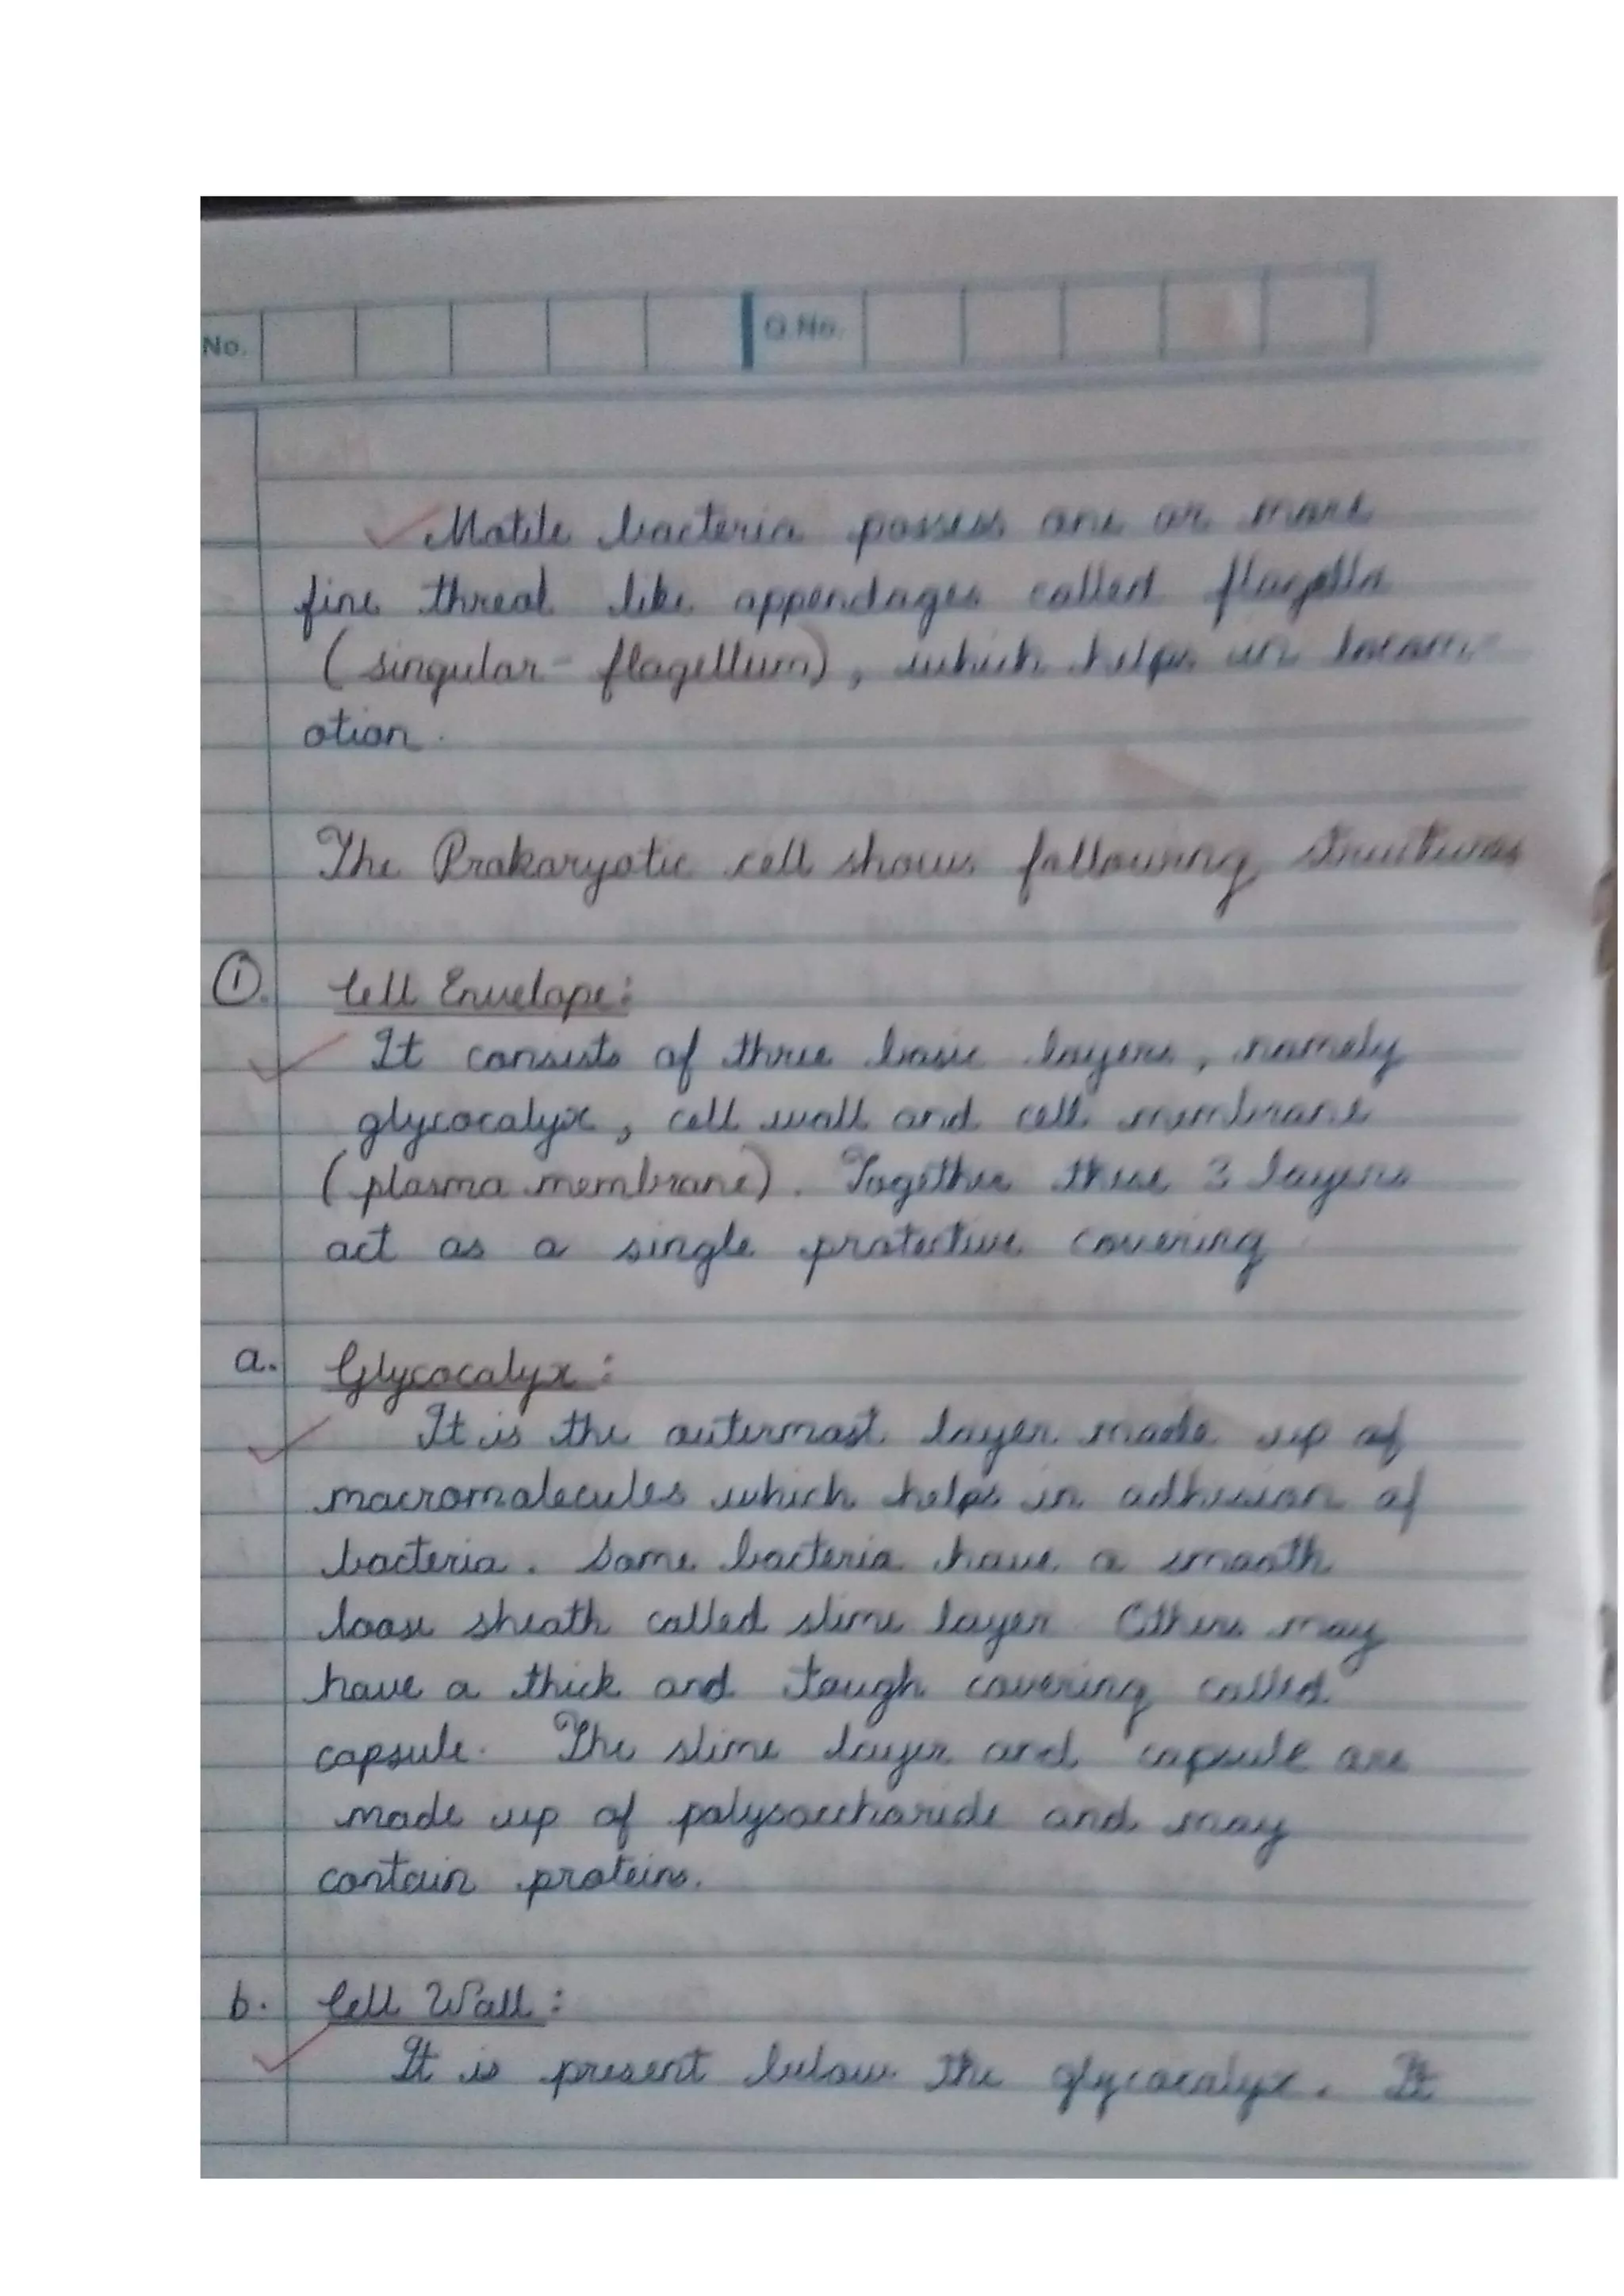 No.
Q.No.
Motile bacteria possess one or more
fine thread like appendages called flagella
(singular - flagellum), which helps in locom-
otion.
The Prokaryotic cell shows following structures
1. Cell Envelope:
It consists of three basic layers, namely
glycocalyx, cell wall and cell membrane
(plasma membrane). Together these 3 layers
act as a single protective covering
a. Glycocalyx:
It is the outermost layer made up of
macromolecules which helps in adhesion of
bacteria. Some bacteria have a smooth
loose sheath called slime layer. Others may
have a thick and tough covering called
capsule. The slime layer and capsule are
made up of polysaccharide and may
contain proteins.
b. Cell Wall:
It is present below the glycocalyx. It